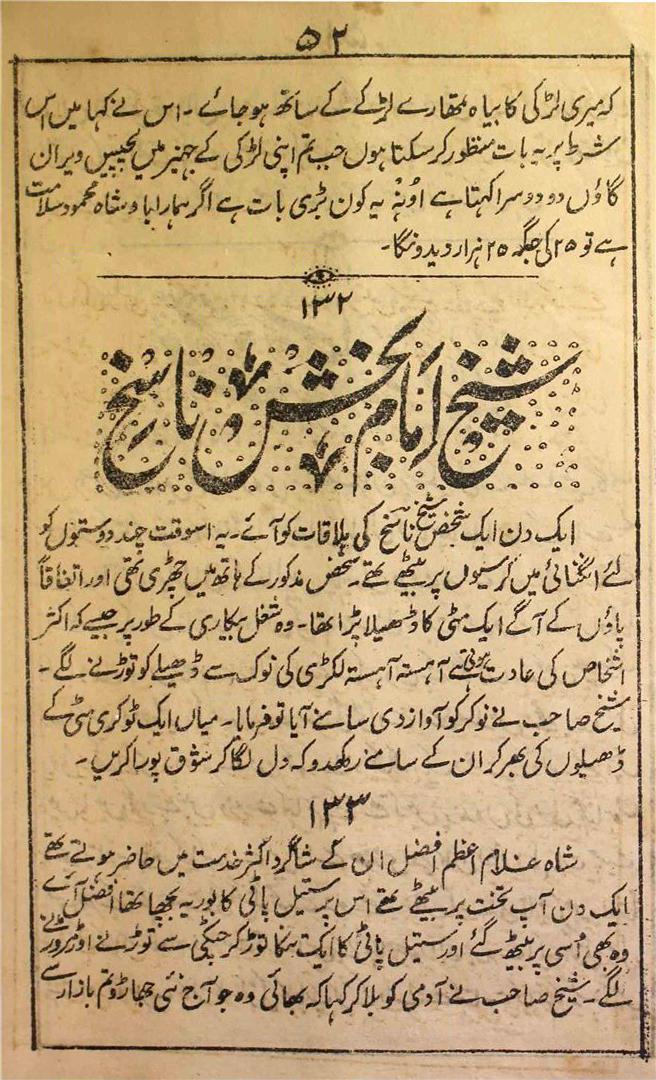 ۵۲
کہ میری لڑکی کا بیاہ تمھارے لڑکے کے ساتھ ہو جائے ۔ اس نے کہا میں اس
شرط پر یہ بات منظور کر سکتا ہوں جب تم اپنی لڑکی کے جہیز میں پچیس ویران
گاؤں دو دوسرا کہتا ہے اونہہ یہ کون بڑی بات ہے اگر ہمارا بادشاہ محمود سلامت
ہے تو ۲۵ کی جگہ ۲۵ ہزار دیدونگا ۔
۱۳۲
شیخ امام بخش ناسخ
ایک دن ایک شخص شیخ ناسخ کی ملاقات کو آئے ۔ یہ اسوقت چند دوستوں کو
لئے انگنائی میں کرسیوں پر بیٹھے تھے ۔ شخص مذکور کے ہاتھ میں چھڑی تھی اور اتفاقاً
پاؤں کے آگے ایک مٹی کا ڈھیلا پڑا تھا ۔ وہ شغل بیکاری کے طور پر جیسے کہ اکثر
اشخاص کی عادت ہوتی ہے آہستہ آہستہ لکڑی کی نوک سے ڈھیلے کو توڑنے لگے ۔
شیخ صاحب نے نوکر کو آواز دی سامنے آیا تو فرمایا ۔ میاں ایک ٹوکری مٹی کے
ڈھیلوں کی بھر کر ان کے سامنے رکھدو کہ دل لگا کر شوق پورا کریں ۔
۱۳۳
شاہ غلام اعظم افضل ان کے شاگرد اکثر خدمت میں حاضر ہوتے تھے
ایک دن آپ تخت پر بیٹھے تھے اس پر ستیل پاٹی کا بوریہ بچھا تھا افضل آئے
وہ بھی اسی پر بیٹھ گئے اور ستیل پاٹی کا ایک تنکا توڑ کر چٹکی سے توڑنے اور مروڑنے
لگے ۔ شیخ صاحب نے آدمی کو بلا کر کہا کہ بھائی وہ جو آج نئی جھاڑو تم بازار سے